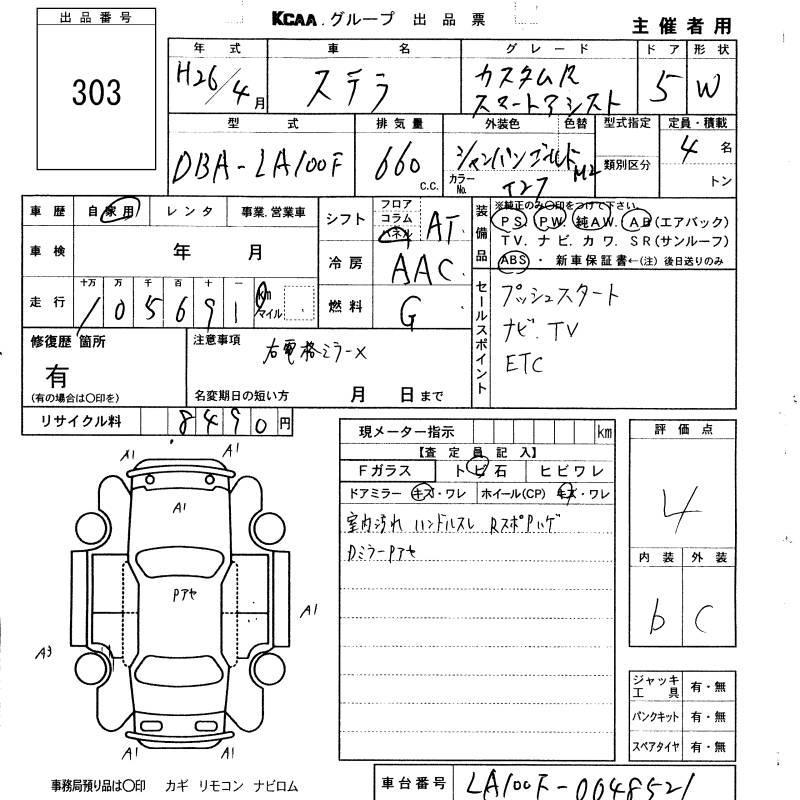 出品番号
303
KCAA.グループ 出品票
主催者用
年式 車名 グレード ドア 形状
H26/4月 ステラ カスタムR スマートアシスト 5 W
型式 排気量 外装色 色替 型式指定 定員・積載
DBA-LA100F 660 c.c. シャンパンゴールドM2 類別区分 4名
カラーNo. T27 トン
車歴 自家用 レンタ 事業.営業車
シフト フロア コラム パネル AT
装備品
※純正のみ〇印をつけて下さい。
PS. PW. 純AW. AB(エアバック)
TV. ナビ. カワ. SR(サンルーフ)
ABS ・ 新車保証書←(注) 後日送りのみ
車検 年 月
冷房 AAC
走行 十万 万 千 百 十 一
105691 km マイル
燃料 G
セールスポイント
プッシュスタート
ナビ.TV
ETC
修復歴 箇所
有
(有の場合は〇印を)
注意事項
右電格ミラー×
名変期日の短い方 月 日まで
リサイクル料 8490円
現メーター指示 km
【査定員記入】
Fガラス トビ石 ヒビワレ
ドアミラー キズ・ワレ ホイール(CP) キズ・ワレ
室内汚れ ハンドルスレ RスポPハゲ
DミラーPアセ
評価点
4
内装 外装
b C
A1 A1
A1
Pアセ
A1
A3
A1 A1
ジャッキ工具 有・無
パンクキット 有・無
スペアタイヤ 有・無
事務局預り品は〇印 カギ リモコン ナビロム
車台番号 LA100F-0048521